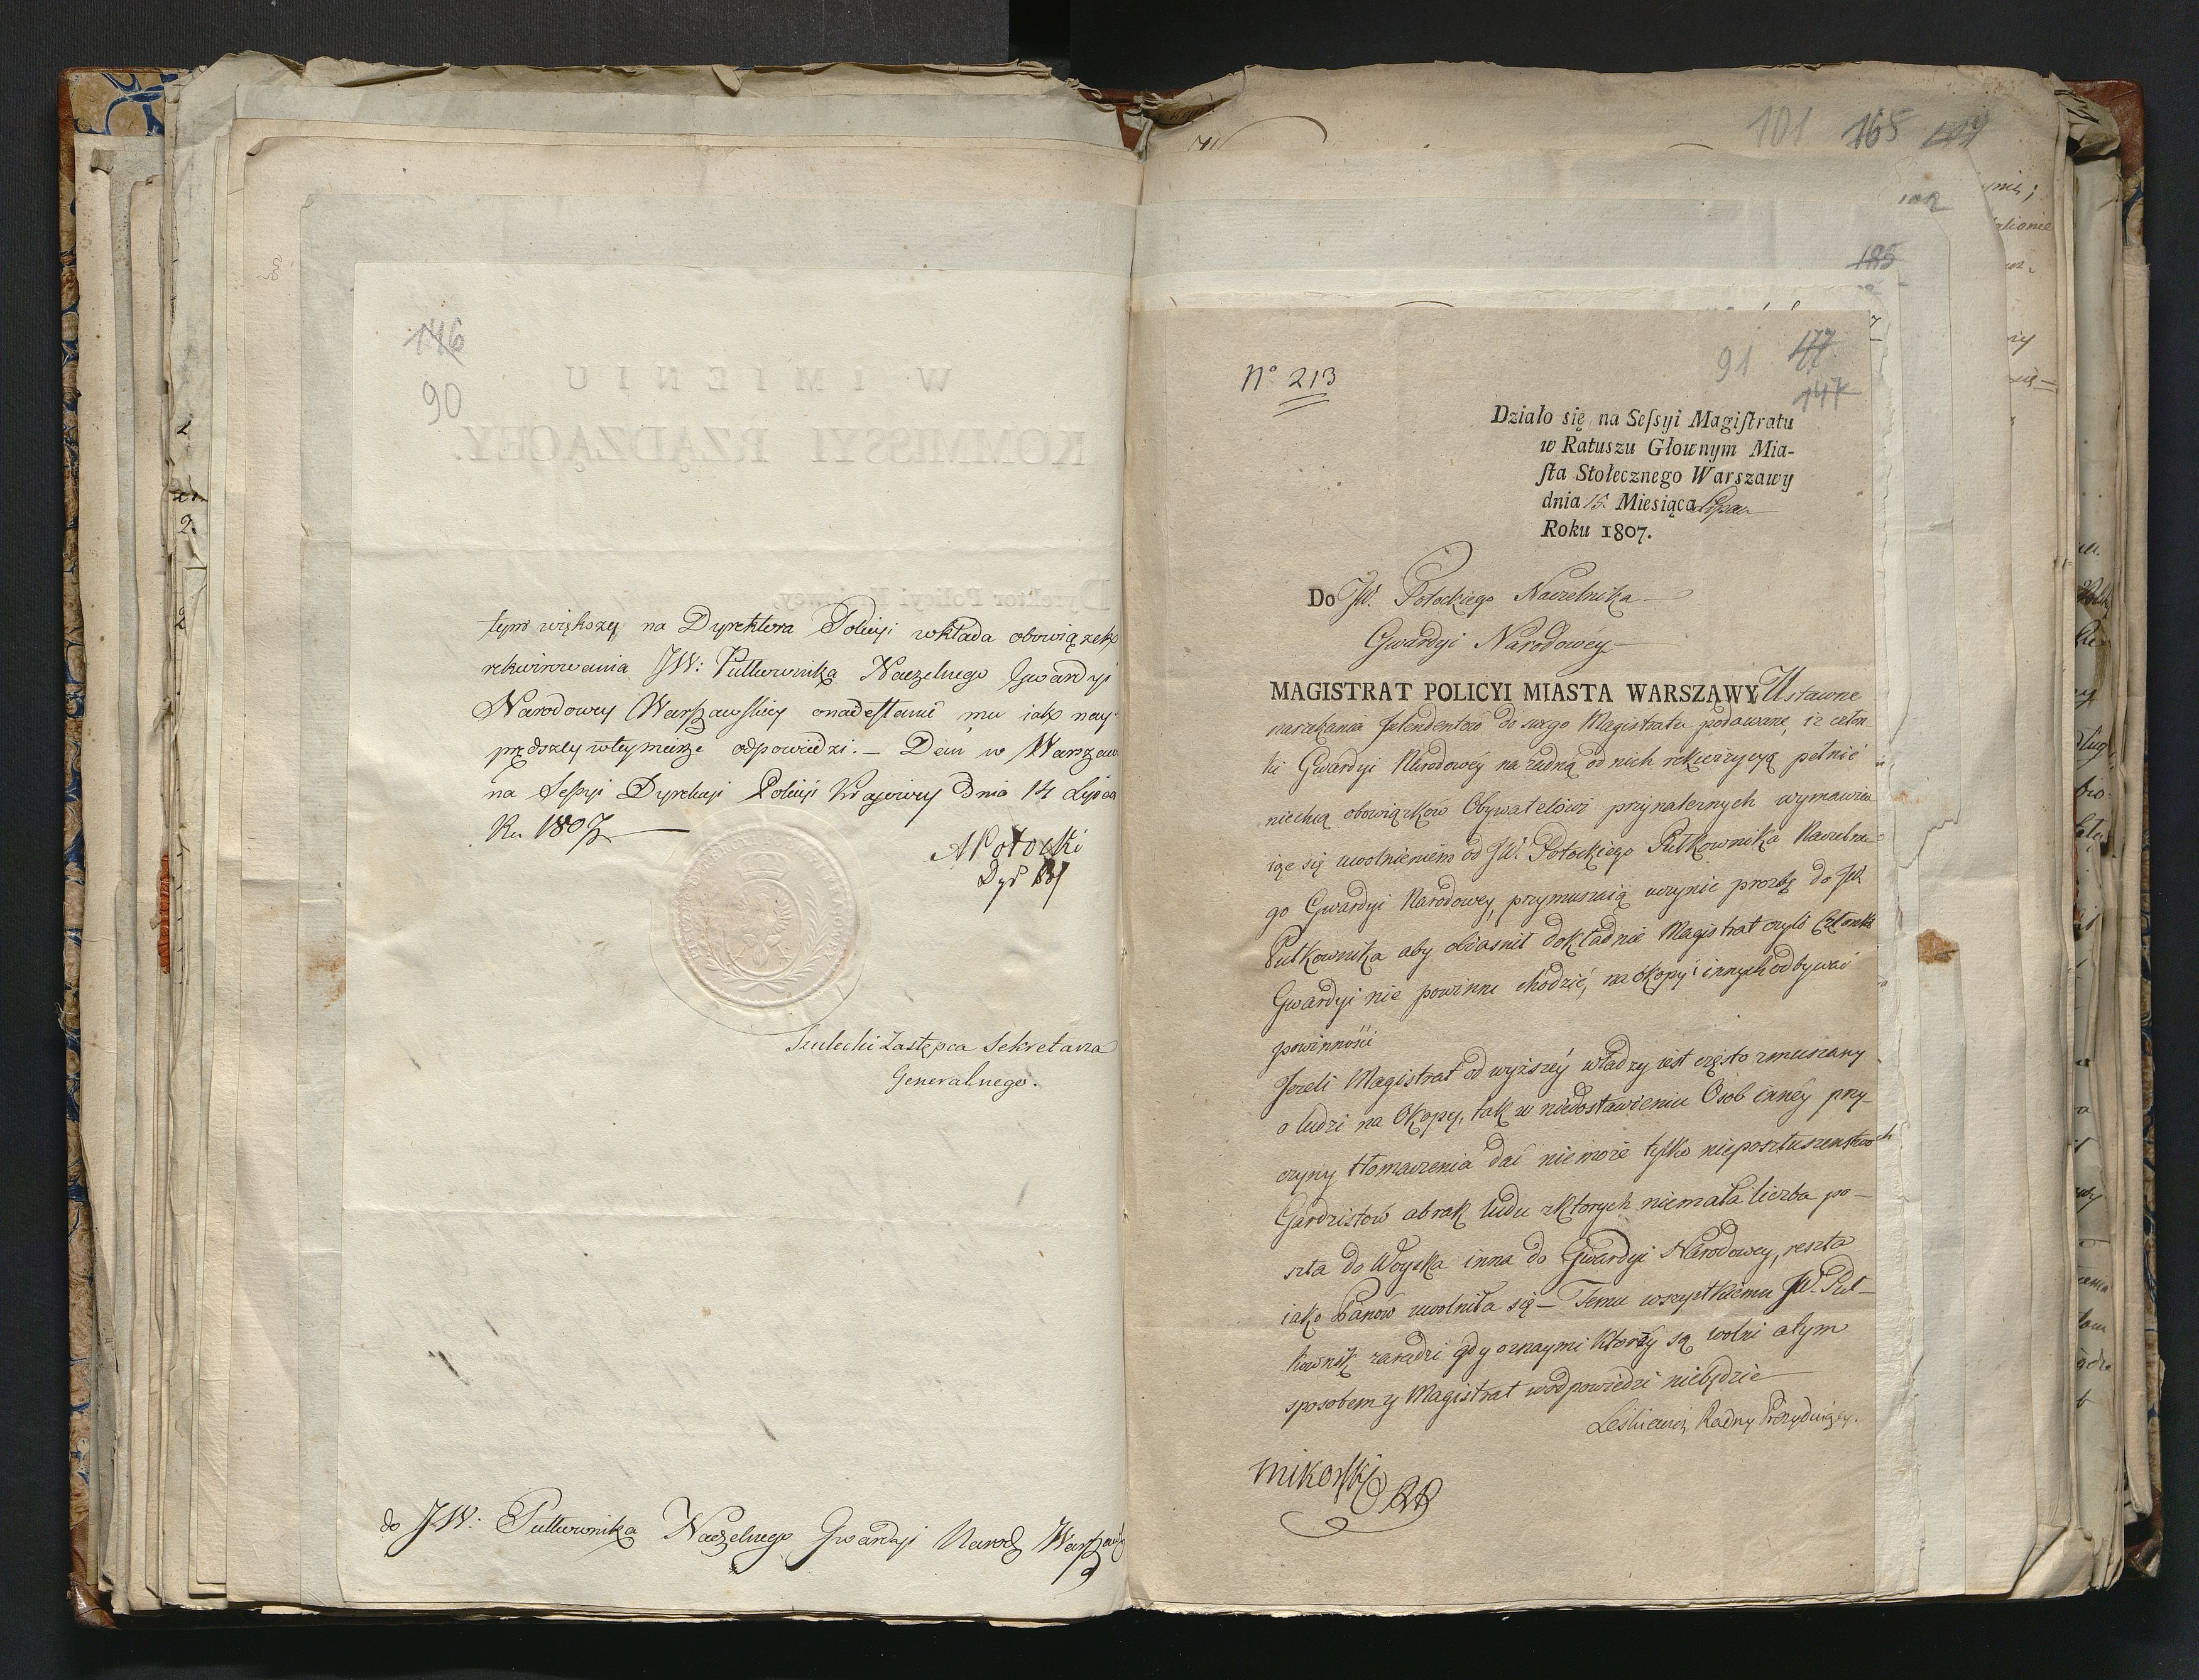 146
90
tym większy na Dyrektora Policyi wkłada obowiązek
rekwirowania JW: Pułkownika Naczelnego Gwardyi
Narodowey Warszawskiey o nadesłanie mu iak nay-
prędszey w tey mierze odpowiedzi. – Dan w Warszaw
na Sessyi Dyrekcyi Policyi Krajowey Dnia 14 Lipca
Ru 1807
APotocki
Dyr Pol
Szulecki Zastępca Sekretarza
Generalnego.
do JW: Pułkownika Naczelnego Gwardyi Narod Warszaw
101 165
102
185
No 213
91 177
147
Działo się na Seſsyi Magiſtratu
w Ratuszu Głownym Mia-
ſta Stołecznego Warszawy
dnia 15. Miesiąca Lipca
Roku 1807.
Do JW. Potockiego Naczelnika
Gwardyi Narodowéy
MAGISTRAT POLICYI MIASTA WARSZAWY Ustawne
narzekania Intendentów do swego Magistratu podawane, iż człon
ki Gwardyi Narodowéy na żadną od nich rekwizycyą pełnić
niechcą obowiązków Obywatelowi przynależnych wymawia
iąc się uwolnieniem od JW. Potockiego Pułkownika Naczelne
go Gwardyi Narodowey, przymuszaią uczynić prozbę do JW.
Pułkownika aby obiasnił dokładnie Magistrat czyli Członki
Gwardyi nie powinni chodzić, na okopy i innych odbywać
powinności
Jezeli Magistrat od wyższéy władzy iest często zmuszany
o ludzi na Okopy, tak w niedostawieniu Osob innéy przy-
czyny tłomaczenia dać nie może tylko nieposłuszeństwo
Gardzistów a brak ludu z ktorych niemała liczba po-
szła do Woyska inna do Gwardyi Narodowey, reszta
iako Panów uwolniła się – Temu wszystkiemu JW. Puł-
kownik zaradzi gdy oznaymi Którzy są wolni a tym
sposobem y Magistrat w odpowiedzi niebędzie
Leśkiewicz Radny Prezyduiący.
Mikorski